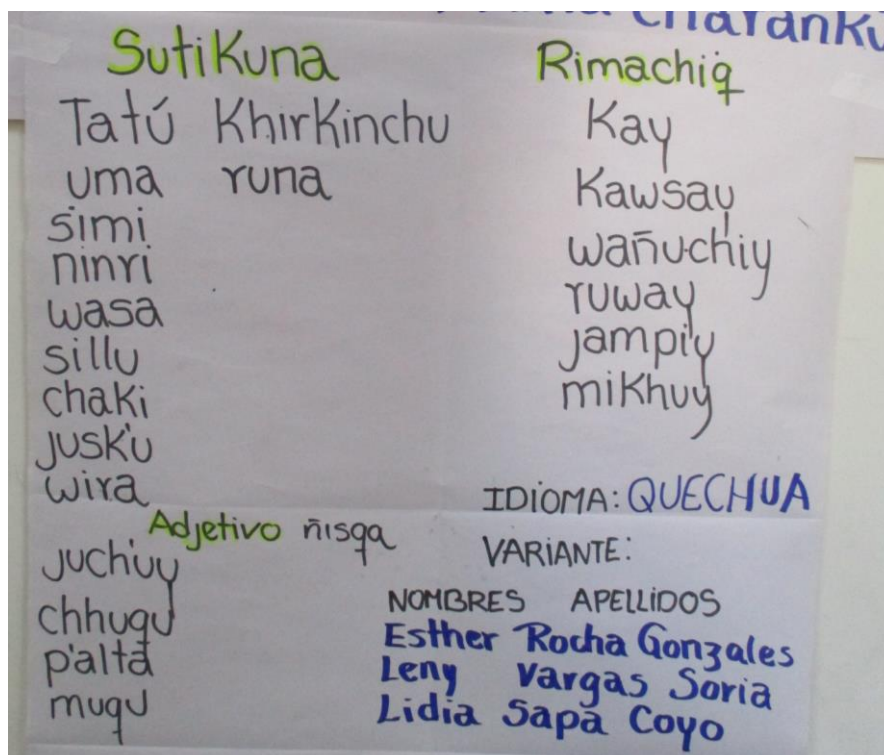 charanku
Sutikuna
Tatú Khirkinchu
uma runa
simi
ninri
wasa
sillu
chaki
jusk'u
wira
Adjetivo ñisqa
juch'uy
chhuqu
p'alta
muqu
Rimachiq
Kay
Kawsay
wañuchiy
ruway
jampiy
mikhuy
IDIOMA: QUECHUA
VARIANTE:
NOMBRES APELLIDOS
Esther Rocha Gonzales
Leny Vargas Soria
Lidia Sapa Coyo